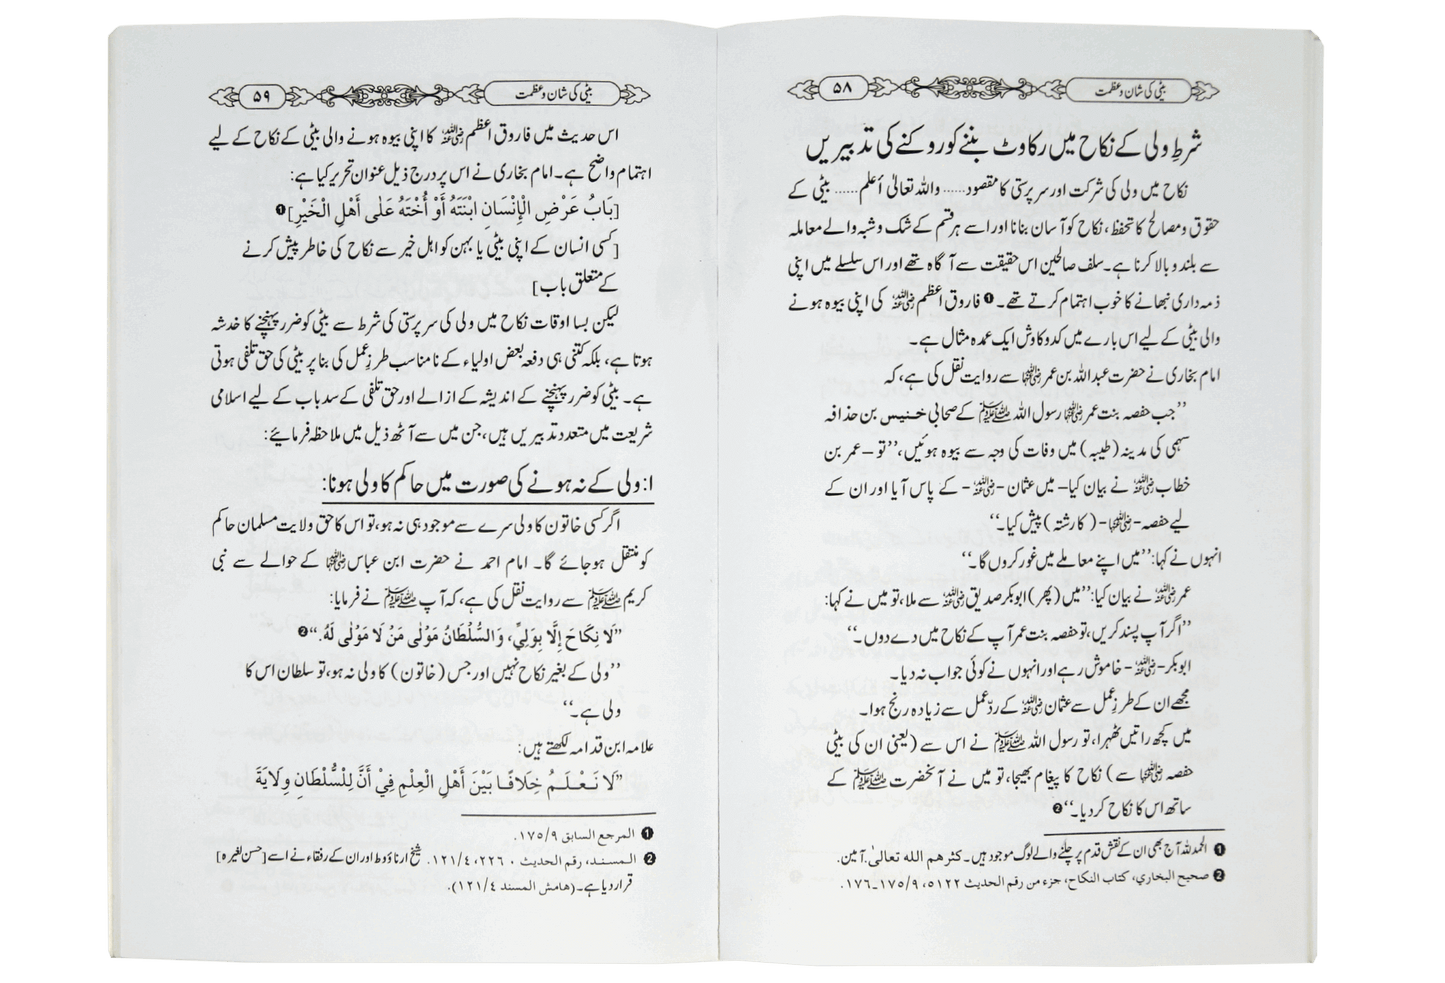 بیٹی کی شان و عظمت
۵۸
شرطِ ولی کے نکاح میں رکاوٹ بننے کو روکنے کی تدبیریں
نکاح میں ولی کی شرکت اور سرپرستی کا مقصود...... واللہ تعالیٰ أعلم...... بیٹی کے
حقوق و مصالح کا تحفظ، نکاح کو آسان بنانا اور اسے ہر قسم کے شک و شبہ والے معاملہ
سے بلند و بالا کرنا ہے۔ سلف صالحین اس حقیقت سے آگاہ تھے اور اس سلسلے میں اپنی
ذمہ داری نبھانے کا خوب اہتمام کرتے تھے۔❶ فاروق اعظم رضی اللہ عنہ کی اپنی بیوہ ہونے
والی بیٹی کے لیے اس بارے میں کدو کاوش ایک عمدہ مثال ہے۔
امام بخاری نے حضرت عبداللہ بن عمر رضی اللہ عنہما سے روایت نقل کی ہے، کہ
’’جب حفصہ بنت عمر رضی اللہ عنہما رسول اللہ ﷺ کے صحابی خنیس بن حذافہ
سہمی کی مدینہ (طیبہ) میں وفات کی وجہ سے بیوہ ہوئیں،’’تو – عمر بن
خطاب رضی اللہ عنہ نے بیان کیا– میں عثمان - رضی اللہ عنہ - کے پاس آیا اور ان کے
لیے حفصہ - رضی اللہ عنہا - (کا رشتہ) پیش کیا۔‘‘
انہوں نے کہا:’’میں اپنے معاملے میں غور کروں گا۔‘‘
عمر رضی اللہ عنہ نے بیان کیا:’’میں (پھر) ابوبکر صدیق رضی اللہ عنہ سے ملا، تو میں نے کہا:
’’اگر آپ پسند کریں، تو حفصہ بنت عمر آپ کے نکاح میں دے دوں۔‘‘
ابوبکر - رضی اللہ عنہ - خاموش رہے اور انہوں نے کوئی جواب نہ دیا۔
مجھے ان کے طرزِ عمل سے عثمان رضی اللہ عنہ کے ردّ عمل سے زیادہ رنج ہوا۔
میں کچھ راتیں ٹھہرا، تو رسول اللہ ﷺ نے اس سے (یعنی ان کی بیٹی
حفصہ رضی اللہ عنہا سے) نکاح کا پیغام بھیجا، تو میں نے آنحضرت ﷺ کے
ساتھ اس کا نکاح کر دیا۔‘‘❷
❶ الحمد للہ آج بھی ان کے نقش قدم پر چلنے والے لوگ موجود ہیں۔ کثر هم الله تعالىٰ. آمین.
❷ صحیح البخاري، كتاب النكاح، جزء من رقم الحديث ٥١٢٢، ١٧٥/٩۔١٧٦.
بیٹی کی شان و عظمت
۵۹
اس حدیث میں فاروق اعظم رضی اللہ عنہ کا اپنی بیوہ ہونے والی بیٹی کے نکاح کے لیے
اہتمام واضح ہے۔ امام بخاری نے اس پر درج ذیل عنوان تحریر کیا ہے:
[بَابُ عَرْضِ الْإِنْسَانِ ابْنَتَهُ أَوْ أُخْتَهُ عَلٰى أَهْلِ الْخَيْرِ]❶
[کسی انسان کے اپنی بیٹی یا بہن کو اہل خیر سے نکاح کی خاطر پیش کرنے
کے متعلق باب]
لیکن بسا اوقات نکاح میں ولی کی سرپرستی کی شرط سے بیٹی کو ضرر پہنچنے کا خدشہ
ہوتا ہے، بلکہ کتنی ہی دفعہ بعض اولیاء کے نامناسب طرزِ عمل کی بنا پر بیٹی کی حق تلفی ہوتی
ہے۔ بیٹی کو ضرر پہنچنے کے اندیشہ کے ازالے اور حق تلفی کے سدباب کے لیے اسلامی
شریعت میں متعدد تدبیریں ہیں، جن میں سے آٹھ ذیل میں ملاحظہ فرمائیے:
۱: ولی کے نہ ہونے کی صورت میں حاکم کا ولی ہونا:
اگر کسی خاتون کا ولی سرے سے موجود ہی نہ ہو، تو اس کا حق ولایت مسلمان حاکم
کو منتقل ہو جائے گا۔ امام احمد نے حضرت ابن عباس رضی اللہ عنہما کے حوالے سے نبی
کریم ﷺ سے روایت نقل کی ہے، کہ آپ ﷺ نے فرمایا:
’’لَا نِكَاحَ إِلَّا بِوَلِيٍّ، وَالسُّلْطَانُ مَوْلٰى مَنْ لَا مَوْلٰى لَهُ.‘‘❷
’’ولی کے بغیر نکاح نہیں اور جس (خاتون) کا ولی نہ ہو، تو سلطان اس کا
ولی ہے۔‘‘
علامہ ابن قدامہ لکھتے ہیں:
’’لَا نَعْلَمُ خِلَافًا بَيْنَ أَهْلِ الْعِلْمِ فِيْ أَنَّ لِلسُّلْطَانِ وِلَايَةَ
❶ المرجع السابق ١٧٥/٩.
❷ المسند، رقم الحديث ٢٢٦٠، ١٢١/٤. شیخ ارناؤوط اور ان کے رفقاء نے اسے [حسن لغیرہ]
قرار دیا ہے۔ (هامش المسند ١٢١/٤).